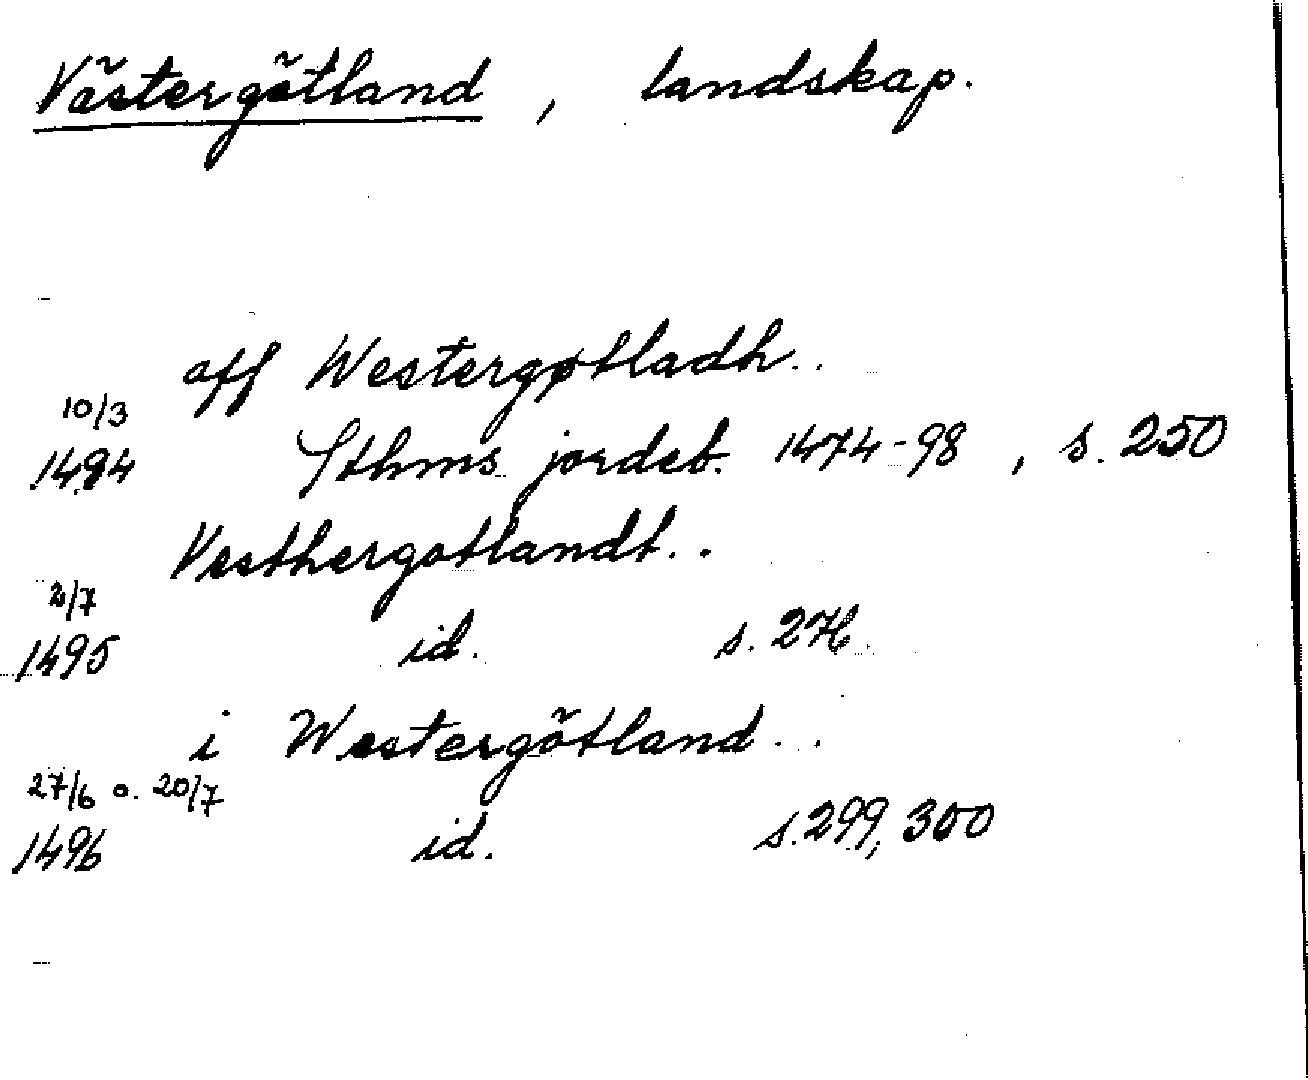 Västergötland, landskap.
aff Westergøtladh..
10/3
1494 Sthms jordeb. 1474-98, s. 250
Vesthergotlandt..
2/7
1495 id. s. 276.
i Westergötland...
27/6 o. 20/7
1496 id. s. 299, 300